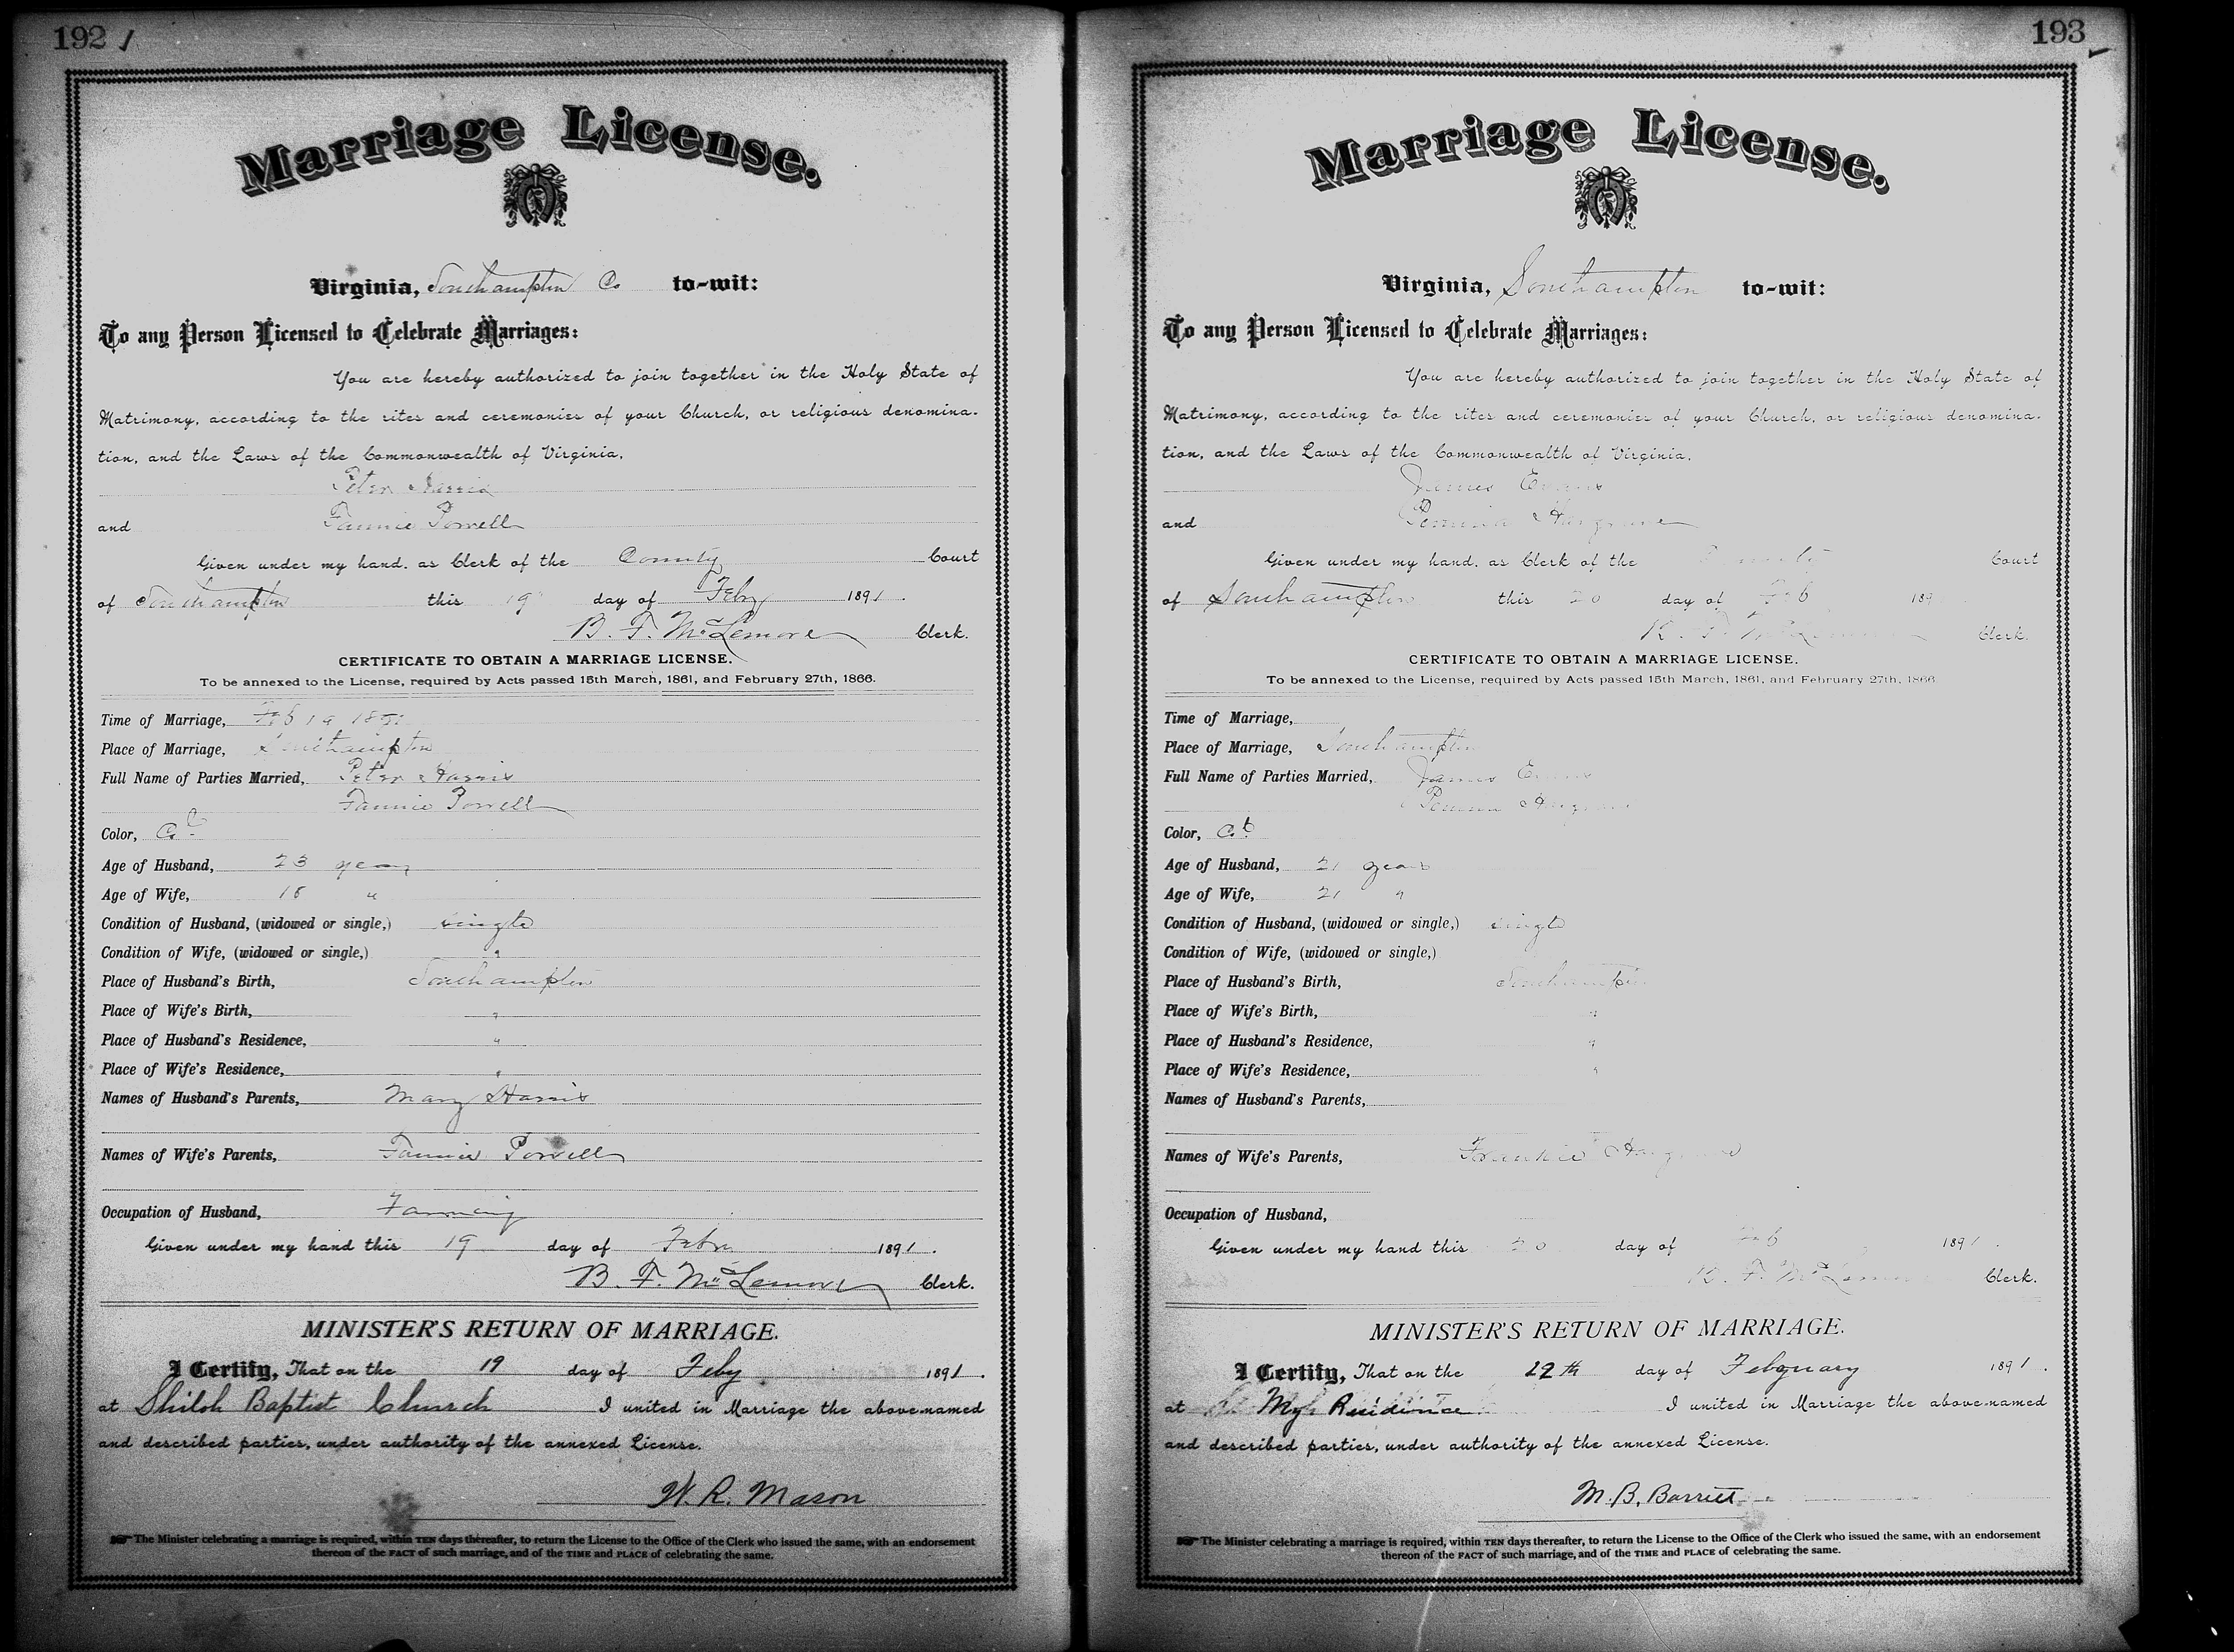 192
Marriage License.
Virginia, Southampton Co to-wit:
To any Person Licensed to Celebrate Marriages:
You are hereby authorized to join together in the Holy State of
Matrimony, according to the rites and ceremonies of your Church, or religious denomina-
tion, and the Laws of the Commonwealth of Virginia,
Peter Harris
and Fannie Powell
Given under my hand, as Clerk of the County Court
of Southampton this 19 day of Feby 1891.
B. F. McLemore Clerk.
CERTIFICATE TO OBTAIN A MARRIAGE LICENSE.
To be annexed to the License, required by Acts passed 15th March, 1861, and February 27th, 1866.
Time of Marriage, Feb 19 1891
Place of Marriage, Southampton
Full Name of Parties Married, Peter Harris
Fannie Powell
Color, Cd
Age of Husband, 23 years
Age of Wife, 18 "
Condition of Husband, (widowed or single,) single
Condition of Wife, (widowed or single,) "
Place of Husband's Birth, Southampton
Place of Wife's Birth, "
Place of Husband's Residence, "
Place of Wife's Residence, "
Names of Husband's Parents, Mary Harris
Names of Wife's Parents, Fannie Powell
Occupation of Husband, Farming
Given under my hand this 19 day of Feby 1891.
B. F. McLemore Clerk.
MINISTER'S RETURN OF MARRIAGE.
I Certify, That on the 19 day of Feby 1891.
at Shiloh Baptist Church I united in Marriage the above-named
and described parties, under authority of the annexed License.
W. R. Mason
The Minister celebrating a marriage is required, within TEN days thereafter, to return the License to the Office of the Clerk who issued the same, with an endorsement
thereon of the FACT of such marriage, and of the TIME and PLACE of celebrating the same.
193
Marriage License.
Virginia, Southampton to-wit:
To any Person Licensed to Celebrate Marriages:
You are hereby authorized to join together in the Holy State of
Matrimony, according to the rites and ceremonies of your Church, or religious denomina-
tion, and the Laws of the Commonwealth of Virginia,
James Evans
and Hargrave
Given under my hand, as Clerk of the County Court
of Southampton this 20 day of Feb 189
B. F. McLemore Clerk.
CERTIFICATE TO OBTAIN A MARRIAGE LICENSE.
To be annexed to the License, required by Acts passed 15th March, 1861, and February 27th, 1866
Time of Marriage,
Place of Marriage, Southampton
Full Name of Parties Married, James Evans
Hargrave
Color, Cd
Age of Husband, 21 years
Age of Wife, 21 "
Condition of Husband, (widowed or single,) single
Condition of Wife, (widowed or single,)
Place of Husband's Birth, Southampton
Place of Wife's Birth, "
Place of Husband's Residence, "
Place of Wife's Residence, "
Names of Husband's Parents,
Names of Wife's Parents, Frankie Hargrave
Occupation of Husband,
Given under my hand this 20 day of Feb 1891.
B. F. McLemore Clerk.
MINISTER'S RETURN OF MARRIAGE.
I Certify, That on the 22th day of Febguary 1891.
at My Residence I united in Marriage the above-named
and described parties, under authority of the annexed License.
M. B. Barrett
The Minister celebrating a marriage is required, within TEN days thereafter, to return the License to the Office of the Clerk who issued the same, with an endorsement
thereon of the FACT of such marriage, and of the TIME and PLACE of celebrating the same.